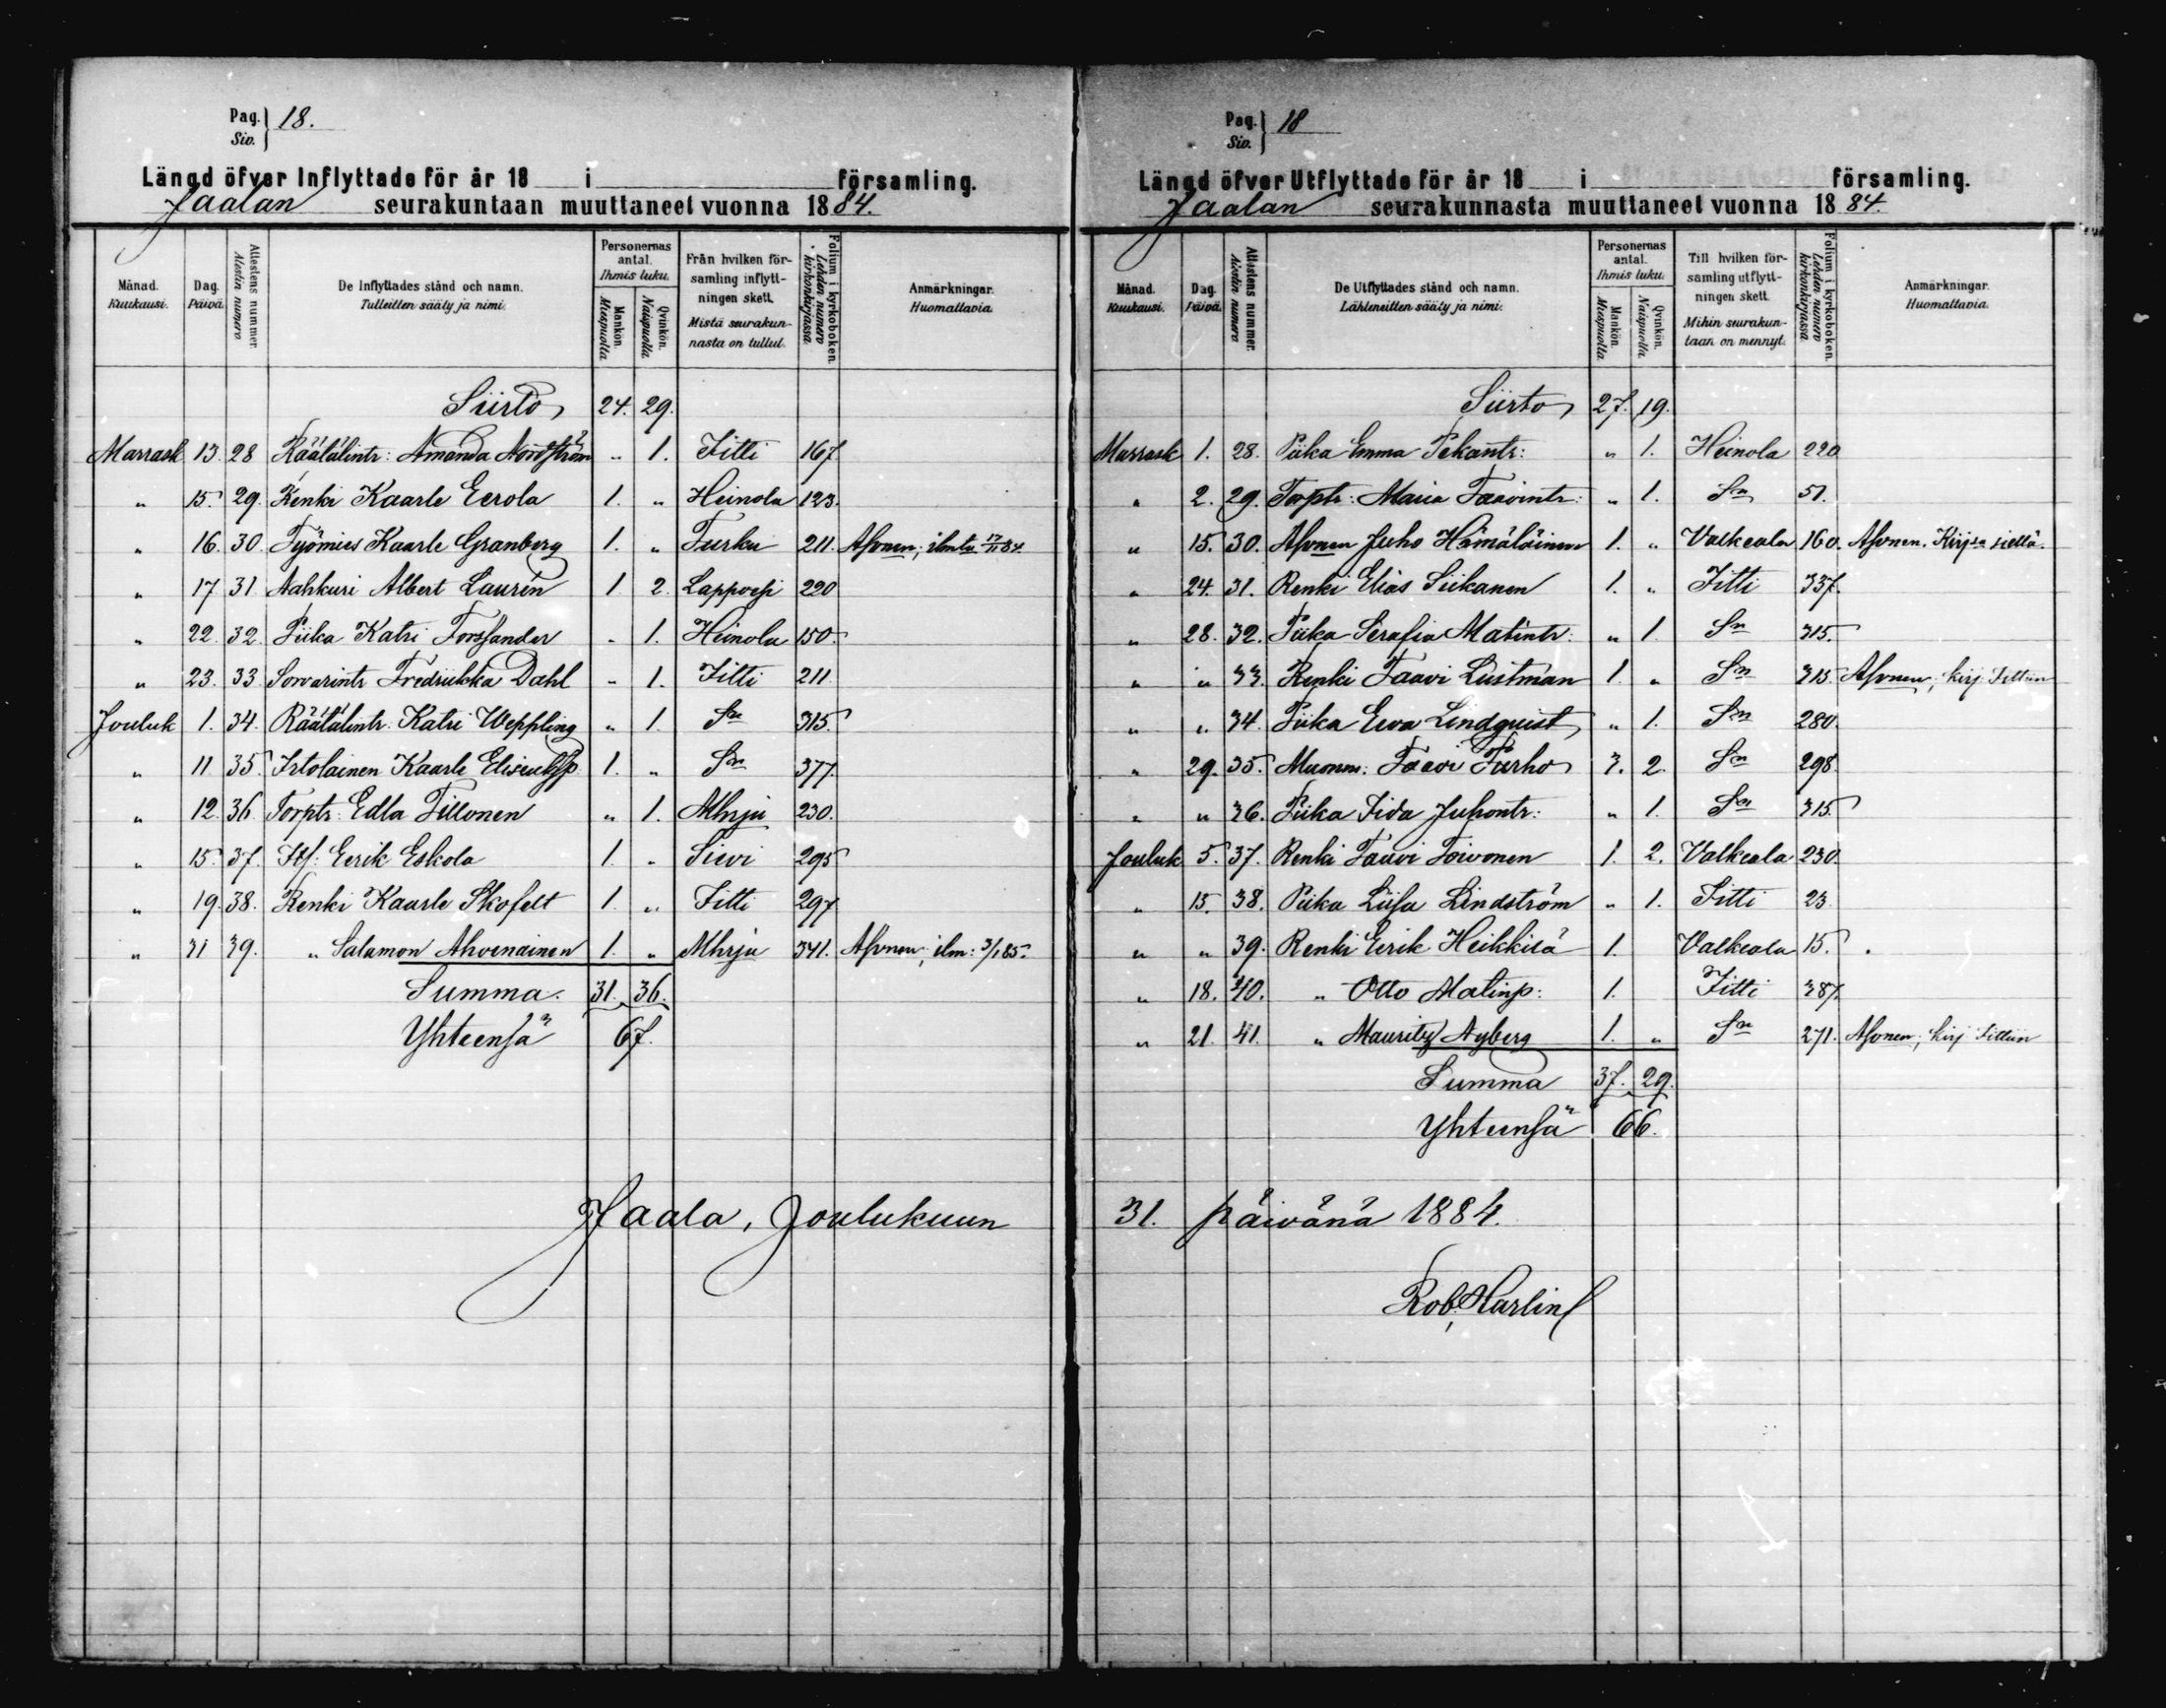 Pag. Siv. } 18.
Längd öfver Inflyttade för år 18 i församling.
Jaalan seurakuntaan muuttaneet vuonna 1884.
Månad. Kuukausi. Dag. Päivä. Attestens nummer. Atestin numero De Inflyttades stånd och namn. Tulleitten sääty ja nimi. Personernas antal. Ihmis luku. Mankön. Miespuolia. Qvinkön. Naispuolia. Från hvilken församling inflyttningen skett. Mistä seurakunnasta on tullut. Folium i kyrkoboken. Lehden numero kirkonkirjassa Anmärkningar. Huomattavia.
Siirto 24. 29.
Marrask 13. 28 Räätälintr: Amanda Nordström " 1. Iitti 167
" 15. 29. Renki Kaarle Eerola 1. " Heinola 123.
" 16. 30. Työmies Kaarle Granberg 1. " Turku 211. Asonen; 17/11 84.
" 17 31. Nahkuri Albert Laurén 1. 2. Lappvesi 220
" 22. 32. Piika Katri Forssander " 1. Heinola 150.
" 23. 33. Sorvarintr Fredrikka Dahl " 1. Iitti 211.
Jouluk 1. 34. Räätälintr. Katri Weppling " 1. Sn 315.
" 11. 35. Irtolainen Kaarle 1. " Sn 377.
" 12. 36. Torptr: Edla Tillonen " 1. Mhrju 230.
" 15. 37. Itf: Eerik Eskola 1. " Sievi 295
" 19. 38. Renki Kaarle Skofelt 1. " Iitti 297
" 31 39. " Salamon Ahvenainen 1. " Mhrju 341. Asonen; ilm: 3/1 85.
Summa. 31. 36.
Yhteensä 67.
Jaala, Joulukuun
Pag. Siv. } 18
Längd öfver Utflyttade för år 18 i församling.
Jaalan seurakunnasta muuttaneet vuonna 1884.
Månad. Kuukausi. Dag. Päivä. Attestens nummer. Atestin numero De Utflyttades stånd och namn. Lähteneitten sääty ja nimi. Personernas antal. Ihmis luku. Mankön. Miespuolia. Qvinkön. Naispuolia. Till hvilken församling utflyttningen skett. Mihin seurakuntaan on mennyt. Folium i kyrkoboken. Lehden numero kirkonkirjassa Anmärkningar. Huomattavia.
Siirto 27. 19.
Marrask 1. 28. Piika Emma Pekantr: " 1. Heinola 220
" 2. 29. Torptr: Maria Taavintr: " 1. Sn 51.
" 15. 30. Asonen Juho Hämäläinen 1. " Valkeala 160. Asonen. Kirj:a siellä.
" 24. 31. Renki Elias Siikanen 1. " Iitti 337.
" 28. 32. Piika Serafia Matintr: " 1. Sn 315.
" " 33. Renki Taavi Liistman 1. " Sn 315. Asonen; kirj Iittiin
" " 34. Piika Eeva Lindquist " 1. Sn 280.
" 29. 35. Muonm: Taavi Turho 3. 2. Sn 298.
" " 36. Piika Iida Juhontr: " 1. Sn 315.
Jouluk 5. 37. Renki Taavi Toivonen 1. 2. Valkeala 230.
" 15. 38. Piika Liisa Lindström " 1. Iitti 23
" " 39. Renki Eerik Heikkilä 1. Valkeala 15.
" 18. 40. " Otto Matinp: 1. Iitti 387.
" 21. 41. " Mauritz Nyberg 1. " Sn 271. Asonen; kirj Iittiin
Summa 37. 29.
Yhteensä 66.
31. päivänä 1884.
Rob. Harlin